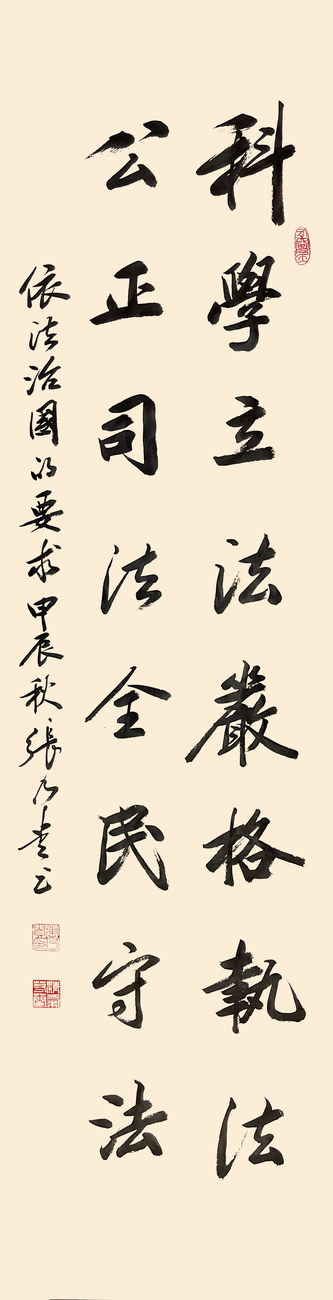 科學立法嚴格執法
公正司法全民守法
依法治國的要求甲辰秋張乃